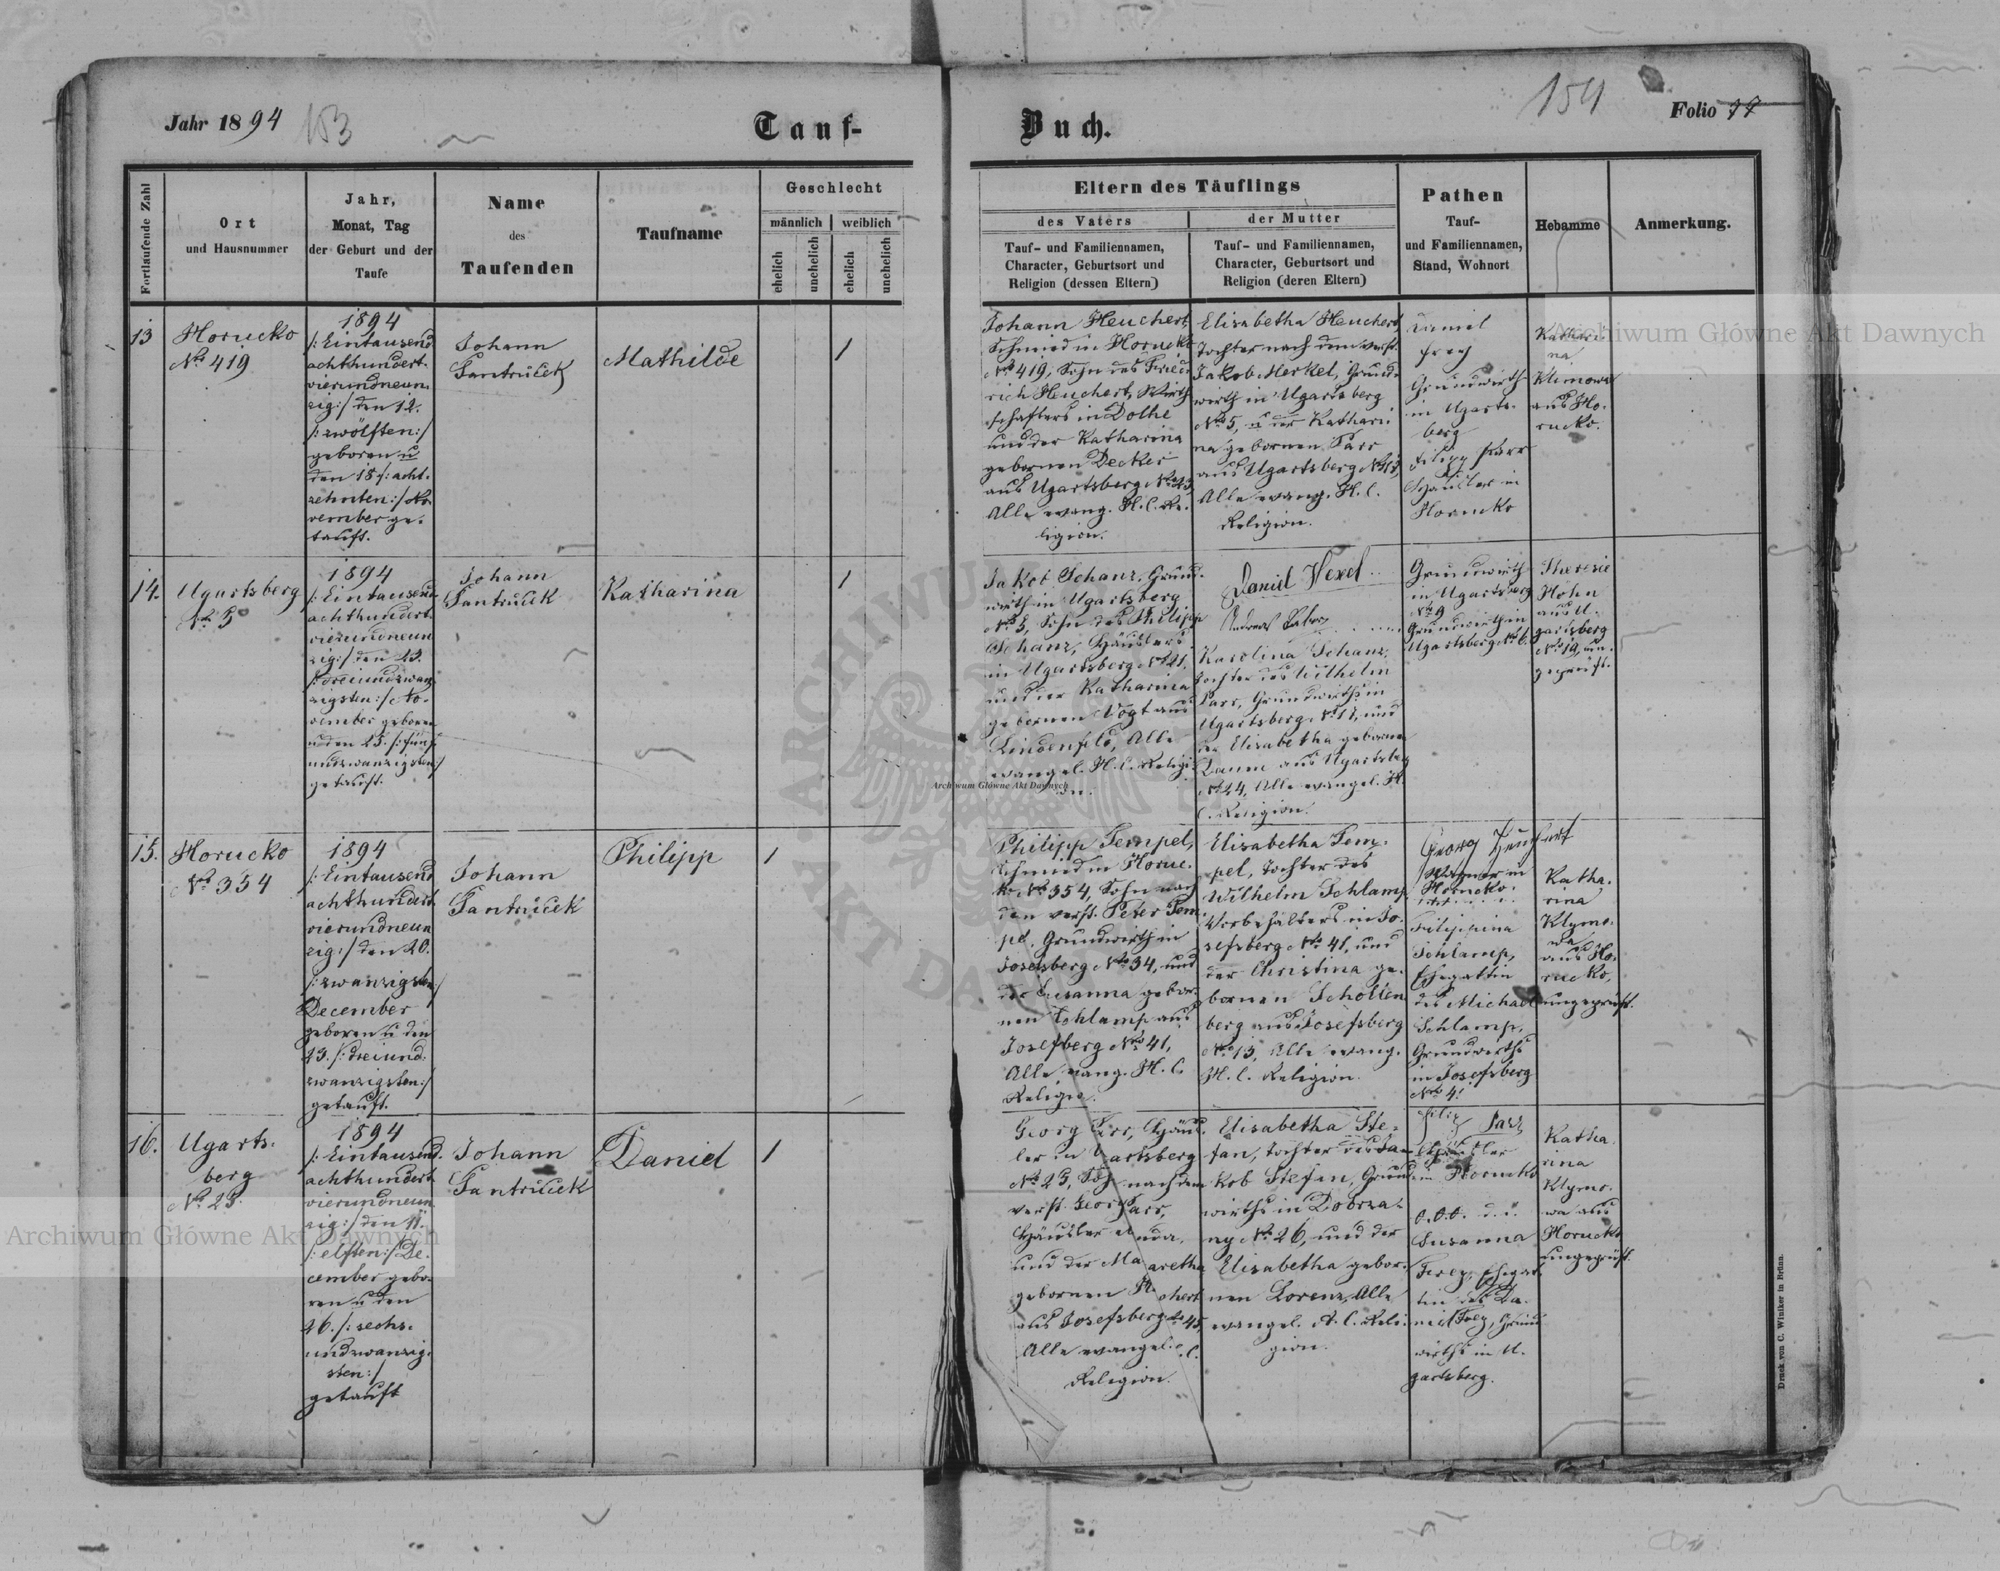 Jahr 1894
153
Tauf-
Buch.
154
Folio 77
Fortlaufende Zahl
Ort
und Hausnummer
Jahr,
Monat, Tag
der Geburt und der
Taufe
Name
des
Taufenden
Taufname
Geschlecht
männlich
weiblich
ehelich
unehelich
ehelich
unehelich
Eltern des Täuflings
des Vaters
Tauf- und Familiennamen,
Character, Geburtsort und
Religion (dessen Eltern)
der Mutter
Tauf- und Familiennamen,
Character, Geburtsort und
Religion (deren Eltern)
Pathen
Tauf-
und Familiennamen,
Stand, Wohnort
Hebamme
Anmerkung.
13
Horucko
No 419
1894
/: Eintausend
achthundert
vierundneun
zig:/ den 12.
/: zwölften:/
geboren u
den 18 /: acht-
zehnten:/ No-
vember ge-
tauft.
Johann
Jantruček
Mathilde
1
Johann Heuchert,
Schmied in Horucko
No 419, Sohn des Fried
rich Heuchert, Wirth
schafters in Dolhe
und der Katharina
gebornen Decker
aus Ugartsberg
Alle evang. H. C. Re-
ligion.
Elisabetha Heuchert,
Tochter nach dem verst.
Jakob Merkel, Grund-
wirth in Ugartsberg
No 5, u der Kathari-
na gebornen Parr
aus Ugartsberg
Alle evang. H. C.
Religion.
Daniel
Frey
Grundwirth
in Ugarts-
berg
Filipp Parr
Häusler in
Horucko
Kathari-
na
Klimowa
aus Ho-
rucko.
14.
Ugartsberg
No 5
1894
/: Eintausend
achthundert
vierundneun
zig:/ den 23.
/: dreiundzwan
zigsten:/ No-
vember geboren
u den 25. /: fünf
undzwanzigsten:/
getauft.
Johann
Jantruček
Katharina
1
Jakob Schanz, Grund-
wirth in Ugartsberg
No 5, Sohn des Philipp
Schanz, Häuslers
in Ugartsberg No 21,
und der Katharina
gebornen Vogt aus
Lindenfeld, Alle
evangel. H. C. Religi-
on.
Karolina Schanz,
Tochter des Wilhelm
Parr, Grundwirths in
Ugartsberg, No 17, und
der Elisabetha gebornen
Daum aus Ugartsberg
No 24, Alle evangel. H.
C. Religion.
Daniel Hexel
Grundwirth
in Ugartsberg
No 9
Grundwirth in
Ugartsberg No 6.
Theresie
Höhn
aus U-
gartsberg
No 19, un-
geprüft.
15.
Horucko
No 354
1894
/: Eintausend
achthundert
vierundneun
zig:/ den 20.
/: zwanzigsten:/
December
geboren u den
23. /: dreiund-
zwanzigsten:/
getauft.
Johann
Jantruček
Philipp
1
Philipp Tempel,
Schmied in Horuc-
ko No 354, Sohn nach
dem verst. Peter Tem
pel, Grundwirth in
Josefsberg No 34, und
der Susanna gebor-
nen Schlamp aus
Josefsberg No 41,
Alle evang. H. C.
Religion.
Elisabetha Tem-
pel, Tochter des
Wilhelm Schlamp
Vorbehälters in Jo-
sefsberg No 41, und
der Christina ge-
bornen Schollen
berg aus Josefsberg
No 13, Alle evang.
H. C. Religion.
Georg Heuchert
Wagner in
Horucko.
Filippina
Schlamp,
Ehegattin
des Michael
Schlamp,
Grundwirths
in Josefsberg
No 41
Katha-
rina
Klymo-
wa
aus Ho-
rucko,
ungeprüft.
16.
Ugarts-
berg
No 23.
1894
/: Eintausend
achthundert
vierundneun
zig:/ den 11.
/: elften:/ De-
cember gebo-
ren u den
26. /: sechs-
undzwanzig-
sten:/
getauft
Johann
Jantruček
Daniel
1
Georg Parr, Häus-
ler in Ugartsberg
No 23, Sohn nach dem
verst. Georg Parr,
und der Margaretha
gebornen
aus Josefsberg No 45,
Alle evangel. H. C.
Religion.
Elisabetha Ste-
fan, Tochter des Ja-
kob Stefan, Grund
wirths in Dobrza-
ny No 26, und der
Elisabetha gebor-
nen Lorenz, Alle
evangel. H. C. Reli-
gion.
Filip Parr
Häusler
in Horucko
Susanna
Frey, Ehegat-
tin des Da-
niel Frey, Grund
wirths in U-
gartsberg.
Katha-
rina
Klymo-
wa aus
Horucko
ungeprüft.
Druck von C. Winiker in Brünn.
Archiwum Główne Akt Dawnych
Archiwum Główne Akt Dawnych
Archiwum Główne Akt Dawnych